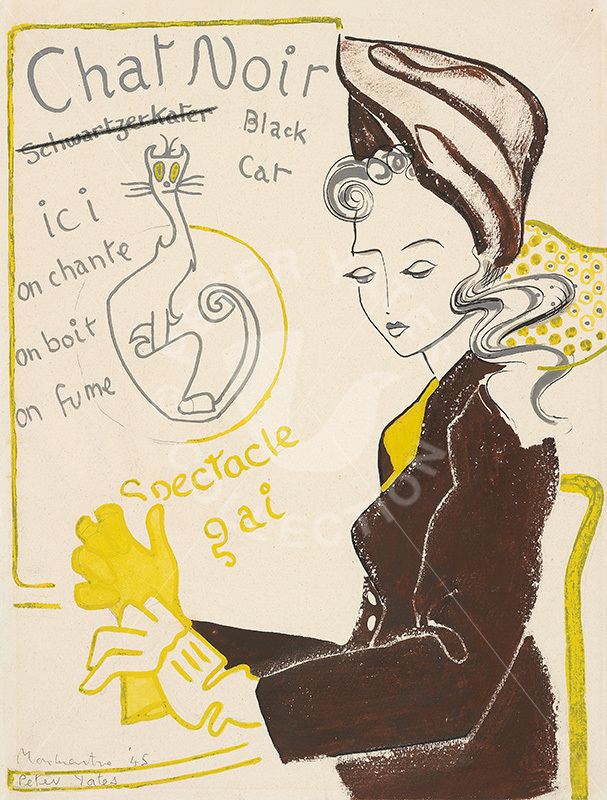 Chat Noir
Schwartzerkater
Black
Cat
ici
on chante
on boit
on fume
Spectacle
gai
Montmartre '45
Peter Yates